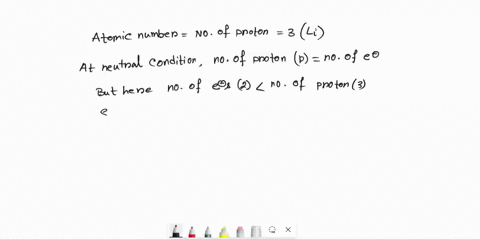 Atomic number = No. of proton = 3 (Li)
At neutral condition, no. of proton (p) = no. of e⊖
But here no. of e⊖s (2) < no. of proton (3)
e